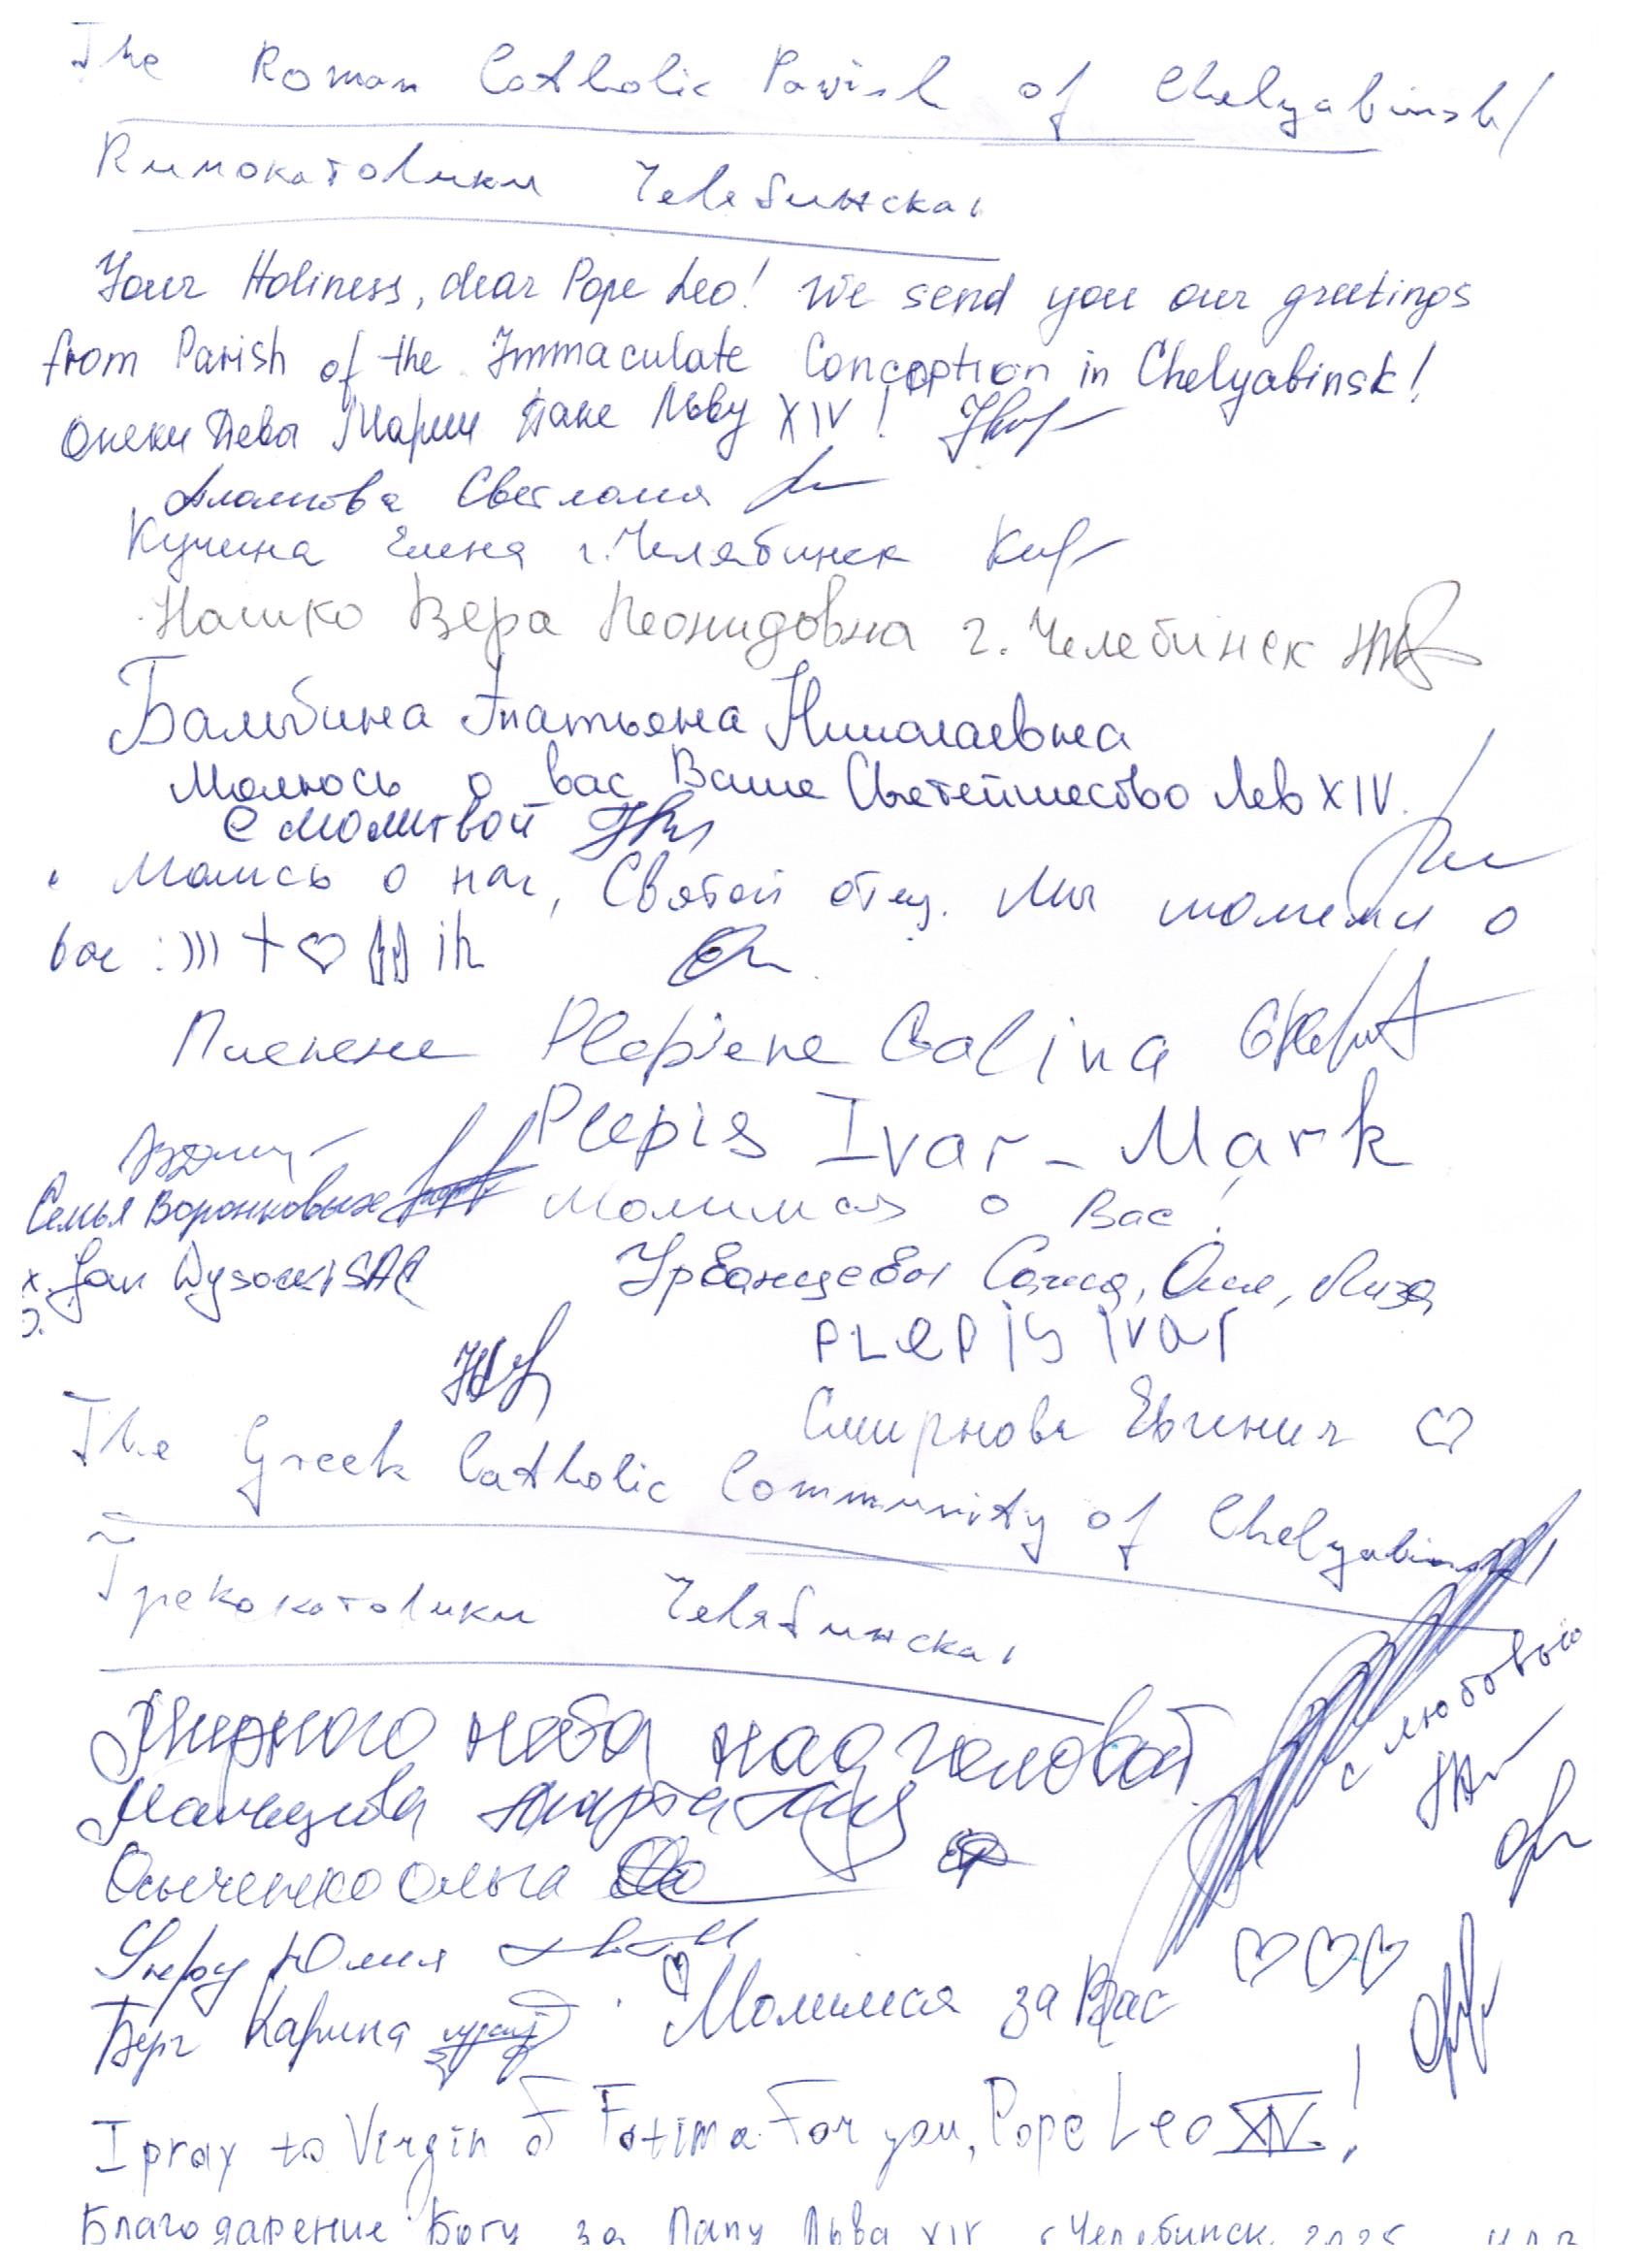 The Roman Catholic Parish of Chelyabinsk/
Римокатолики Челябинска
Your Holiness, dear Pope Leo! We send you our greetings
from Parish of the Immaculate Conception in Chelyabinsk!
Опеки Девы Марии Папе Льву XIV!
Светлана
Кучина Елена г. Челябинск
Нашко Вера Леонидовна г. Челебінск
Балыбина Татьяна Николаевна
Молюсь о вас Ваше Святейшество Лев XIV.
С молитвой
Молись о нас, Святой отец. Мы молимся о
вас :))) + ♡
Плепене Plepiene Galina
Plepis Ivar-Mark
Семья Воронковых Молимся о Вас!
x. Jan Wysocki SAC Урбанцевы Саша, Оля, Лиза
PLEPIS IVAR
Смирнова Евгения ♡
The Greek Catholic Community of Chelyabinsk
Грекокатолики Челябинска
Мирного неба над головой
с любовью
Ольга
Юлия
Берг Карина ♡ Молимся за Вас ♡♡♡
I pray to Virgin of Fatima For you, Pope Leo XIV!
Благодарение Богу за Папу Льва XIV г. Челябинск 2025